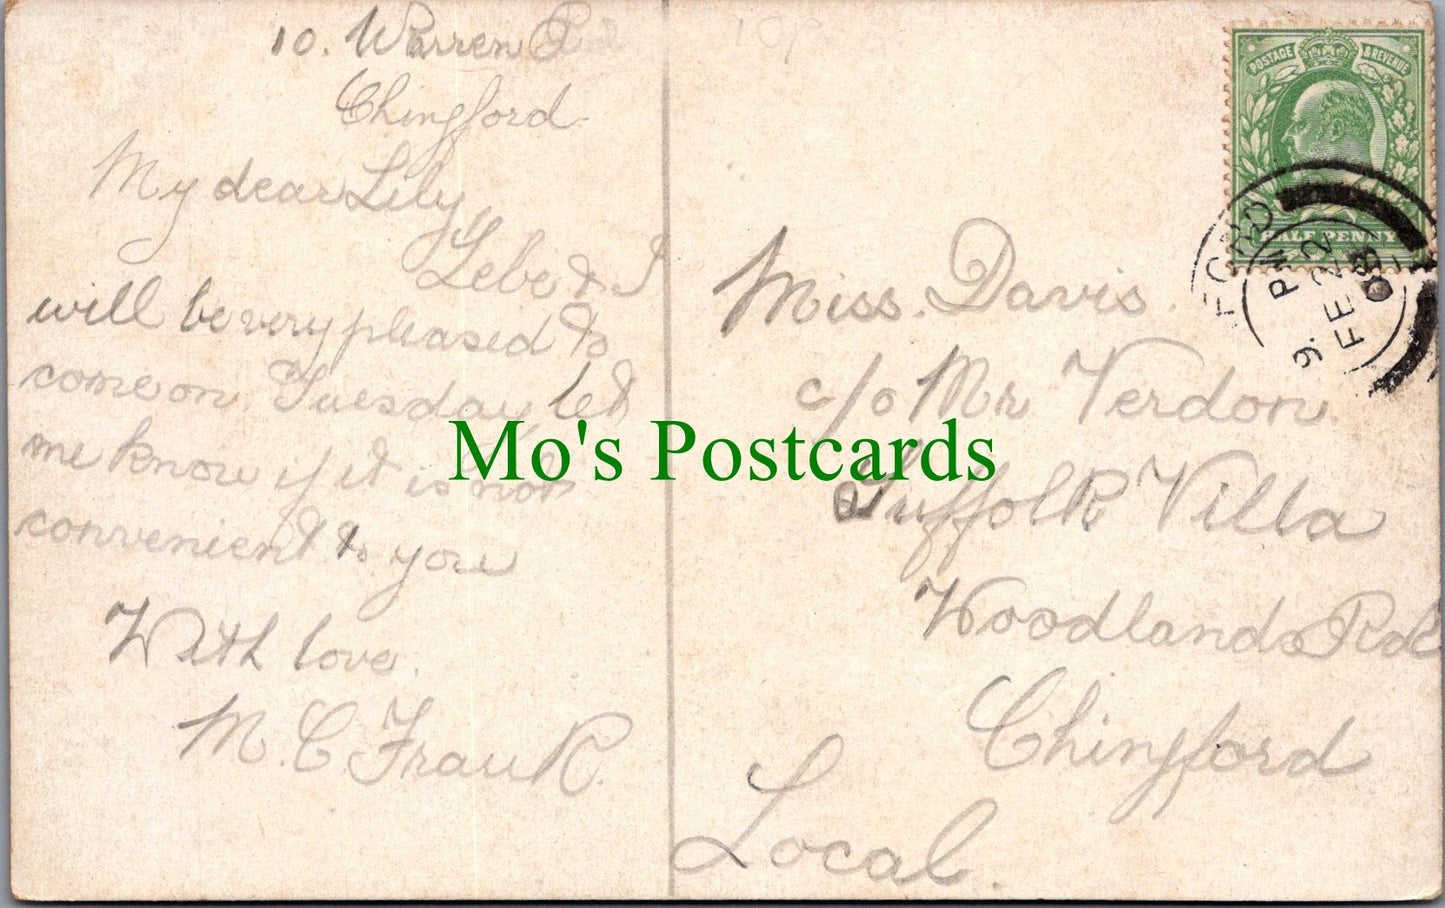 10. Warren Rd
Chingford.
My dear Lily,
Lebe & I
will be very pleased to
come on Tuesday, let
me know if it is not
convenient to you
With love.
M. C. Frank.
Miss. Davis.
c/o Mr Verdon.
Suffolk Villa
Woodlands Rd
Chingford
Local.
POSTAGE & REVENUE
HALF PENNY
FORD
9. PM
FE 22
08
Mo's Postcards